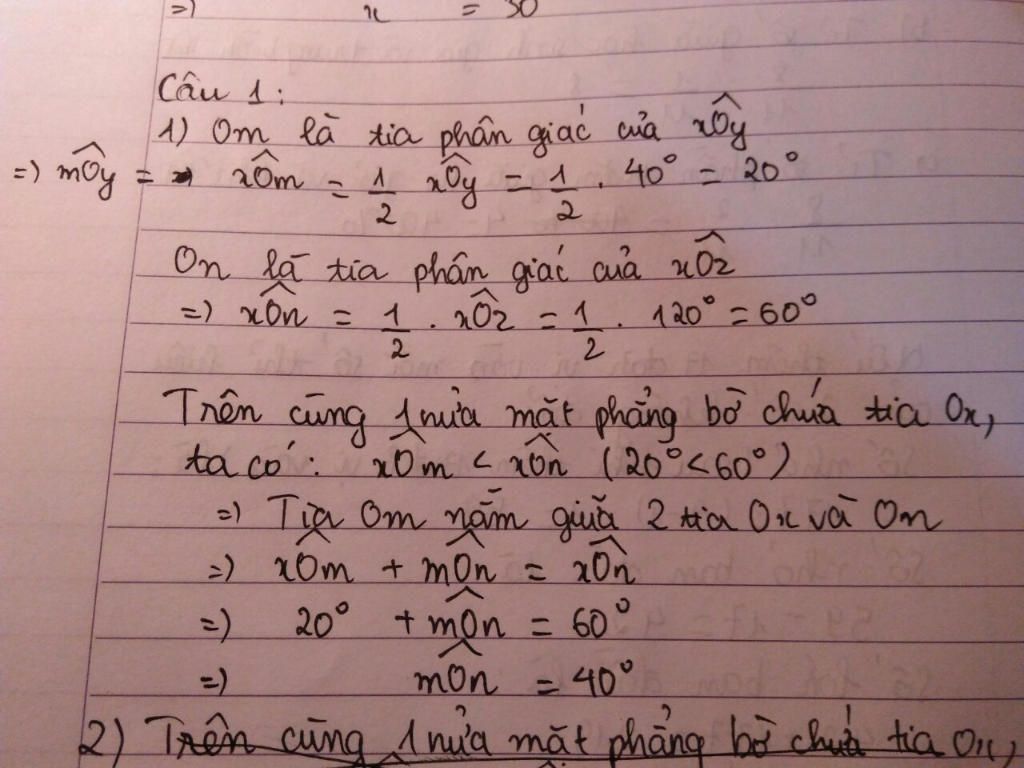 => x = 30
Câu 1:
1) Om là tia phân giác của xÔy
=> mÔy = xÔm = 1/2 xÔy = 1/2 . 40° = 20°
On là tia phân giác của xÔz
=> xÔn = 1/2 . xÔz = 1/2 . 120° = 60°
Trên cùng 1 nửa mặt phẳng bờ chứa tia Ox,
ta có: xÔm < xÔn (20° < 60°)
=> Tia Om nằm giữa 2 tia Ox và On
=> xÔm + mÔn = xÔn
=> 20° + mÔn = 60°
=> mÔn = 40°
2) Trên cùng 1 nửa mặt phẳng bờ chứa tia Ox,